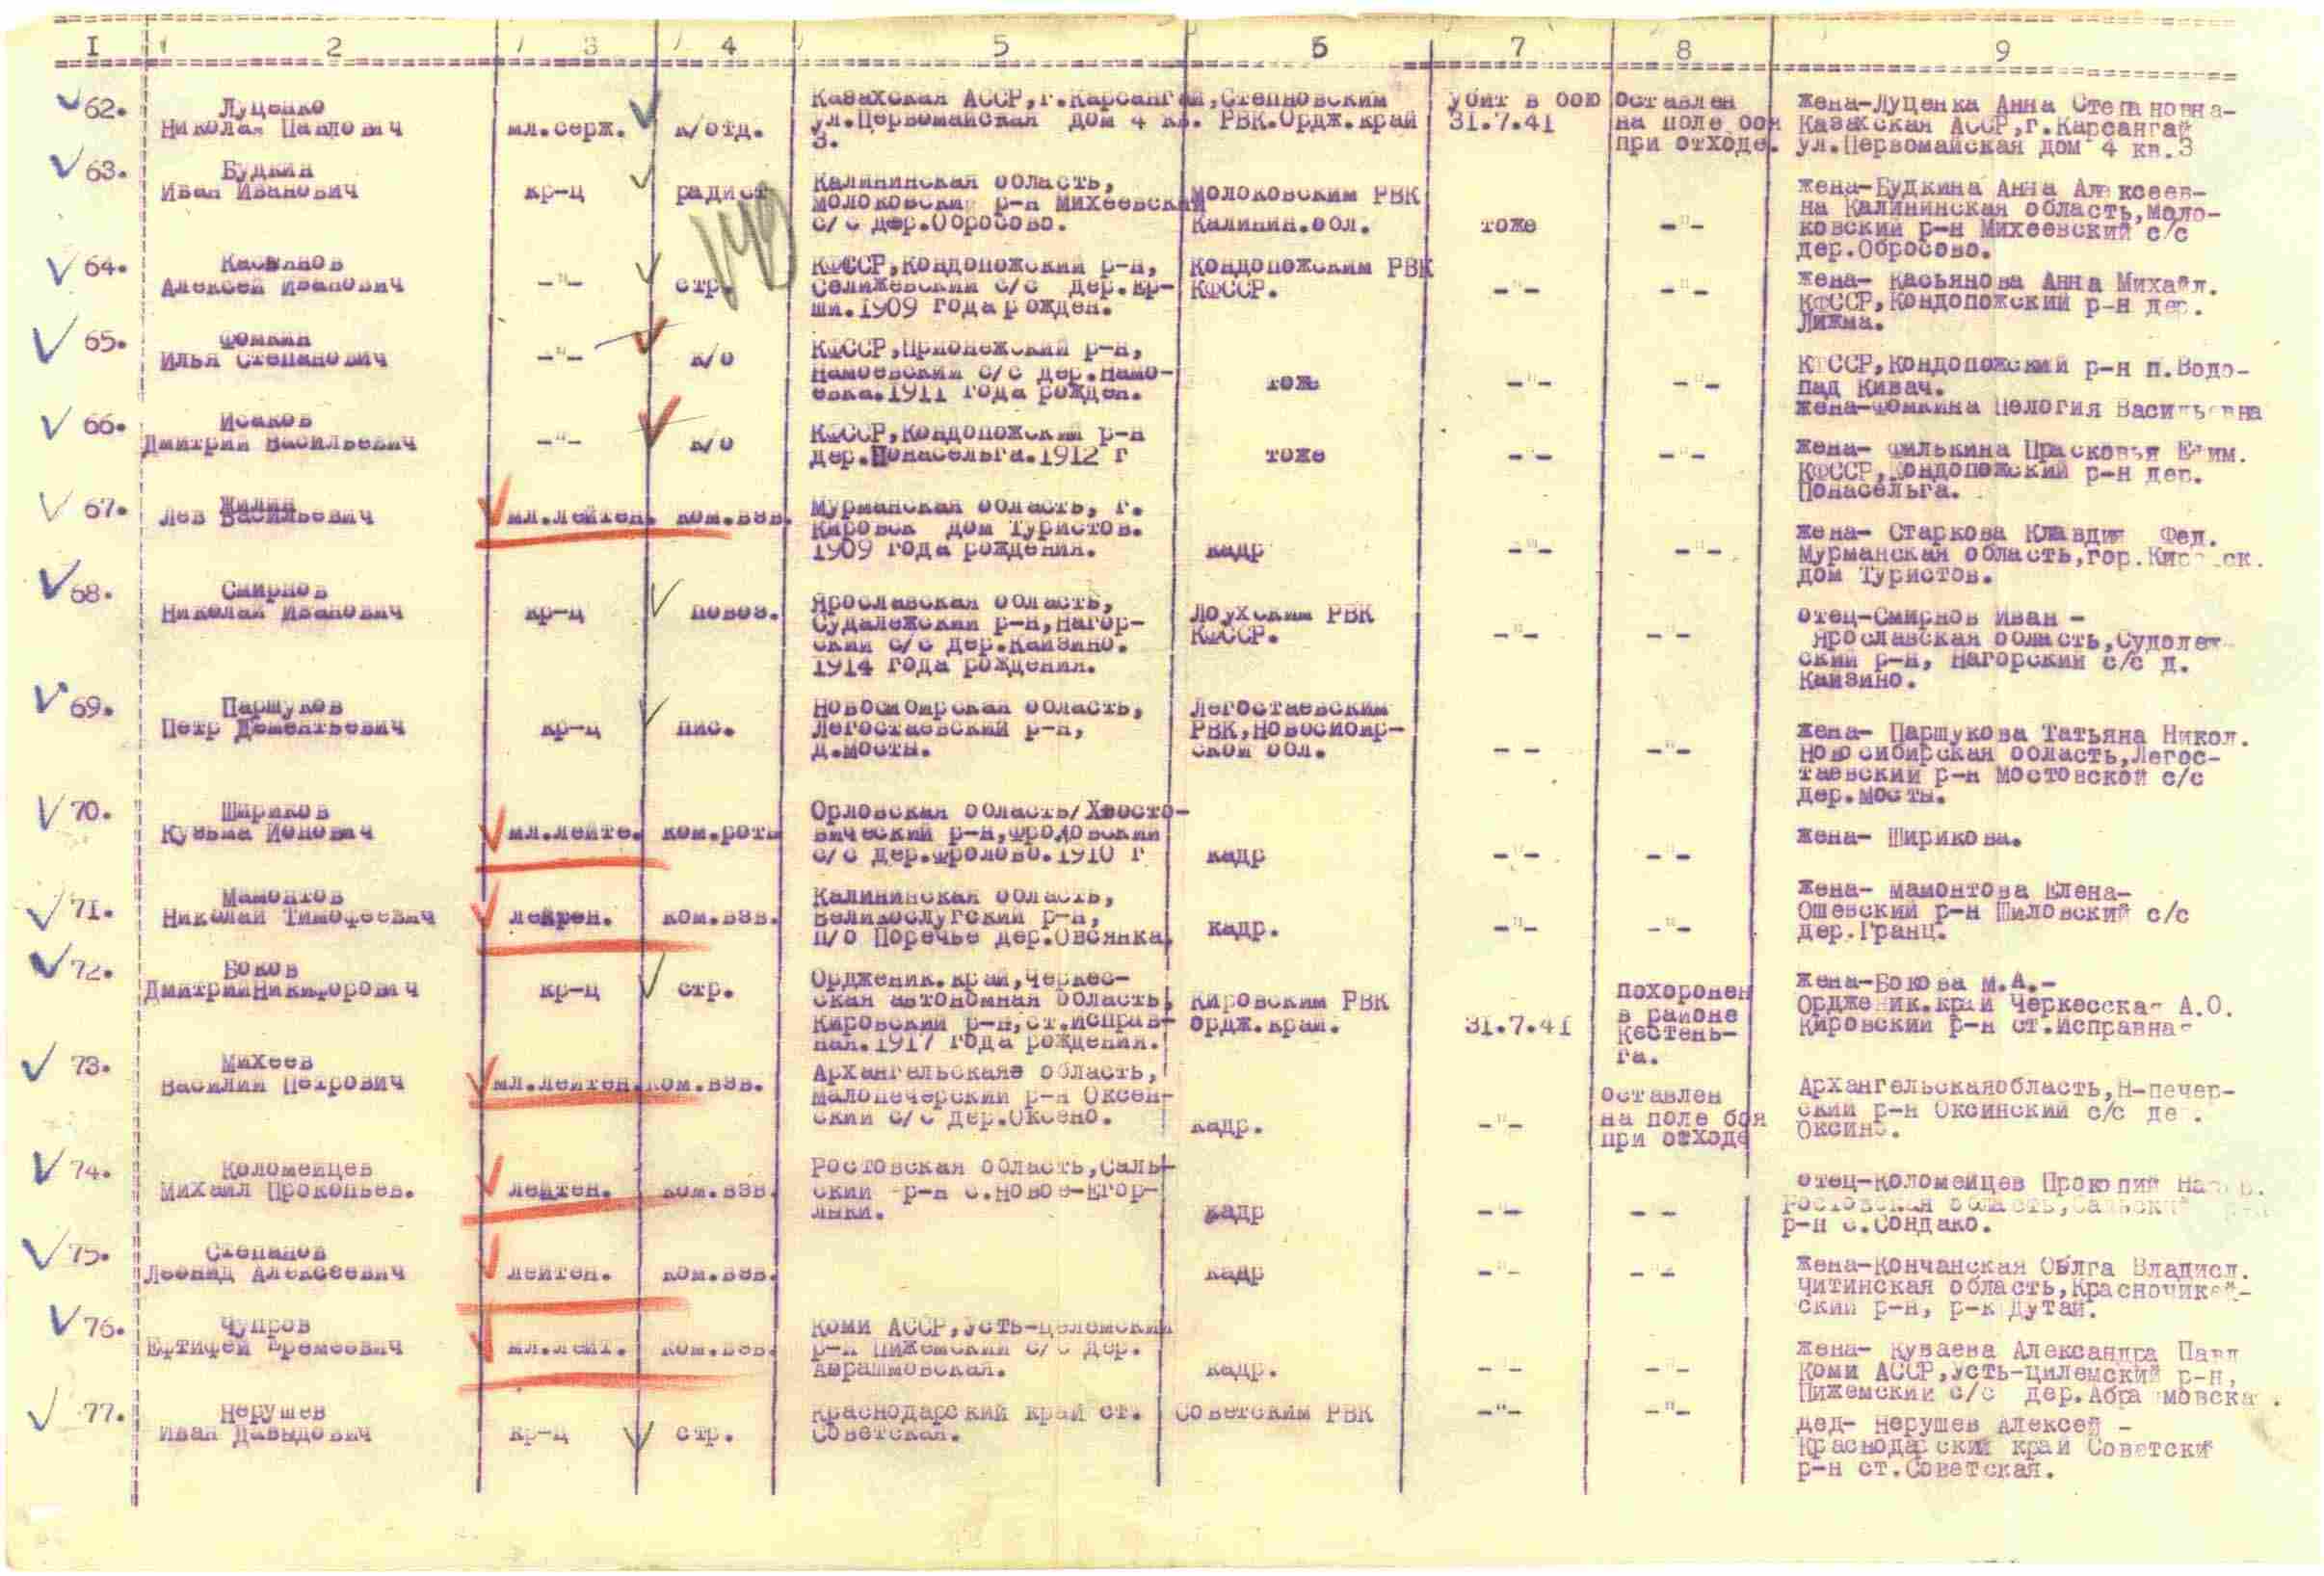 I 2 3 4 5 6 7 8 9
62. Луценко
Николай Павлович
мл.серж. к/отд.
Казахская АССР,г.Карсангай,
ул.Первомайская дом 4 кв.
3.
Степновским
РВК.Ордж.край
убит в бою
31.7.41
оставлен
на поле боя
при отходе.
Жена-Луценка Анна Степановна-
Казахская АССР,г.Карсангай
ул.Первомайская дом 4 кв.3
63. Будкин
Иван Иванович
кр-ц радист
Калининская область,
молоковский р-н Михеевский
с/с дер.Обросово.
молоковским РВК
Калинин.обл.
тоже
-"-
жена-Будкина Анна Алексеев-
на Калининская область,моло-
ковский р-н Михеевский с/с
дер.Обросово.
140
64. Касьянов
Алексей Иванович
-"- стр.
КФССР,Кондопожский р-н,
Селижевский с/с дер.Ер-
ши.1909 года рожден.
Кондопожским РВК
КФССР.
-"-
-"-
жена- Касьянова Анна Михайл.
КФССР,Кондопожский р-н дер.
Лижма.
65. Фомкин
Илья Степанович
-"- к/о
КФССР,Прионежский р-н,
Намоевский с/с дер.Намо-
евка.1911 года рожден.
тоже
-"-
-"-
КФССР,Кондопожский р-н п.Водо-
пад Кивач.
жена-Фомкина Пелогия Васильевна
66. Исаков
Дмитрий Васильевич
-"- к/о
КФССР,Кондопожский р-н
дер.Понасельга.1912 г
тоже
-"-
-"-
жена- Филькина Прасковья Ефим.
КФССР,Кондопожский р-н дер.
Понасельга.
67. Жилин
Лев Васильевич
мл.лейтен. ком.взв.
Мурманская область, г.
Кировск дом Туристов.
1909 года рождения.
кадр
-"-
-"-
жена- Старкова Клавдия Фед.
Мурманская область,гор.Кировск.
дом Туристов.
68. Смирнов
Николай Иванович
кр-ц повоз.
Ярославская область,
Судалежский р-н,Нагор-
ский с/с дер.Каизино.
1914 года рождения.
Лоухским РВК
КФССР.
-"-
-"-
отец-Смирнов Иван -
Ярославская область,Судолеж-
ский р-н, Нагорский с/с д.
Каизино.
69. Паршуков
Петр Дементьевич
кр-ц пис.
Новосибирская область,
Легостаевский р-н,
д.Мосты.
Легостаевским
РВК,Новосибир-
ской обл.
-"-
-"-
жена- Паршукова Татьяна Никол.
Новосибирская область,Легос-
таевский р-н Мостовской с/с
дер.Мосты.
70. Шириков
Кузьма Ионович
мл.лейте. ком.роты
Орловская область/Хвосто-
вический р-н,Фродовский
с/с дер.Фролово.1910 г
кадр
-"-
-"-
жена- Ширикова.
71. Мамонтов
Николай Тимофеевич
лейтен. ком.взв.
Калининская область,
Великослугский р-н,
п/о Поречье дер.Овсянка.
кадр.
-"-
-"-
жена- Мамонтова Елена-
Ошевский р-н Шиловский с/с
дер.Гранц.
72. Боков
ДмитрийНикифорович
кр-ц стр.
Ордженик.край,Черкес-
ская автономная область,
Кировский р-н,ст.Исправ-
ная.1917 года рождения.
Кировским РВК
Ордж.край.
31.7.41
похоронен
в районе
Кестень-
га.
Жена-Бокова М.А.-
Ордженик.край Черкесская А.О.
Кировский р-н ст.Исправная
73. Михеев
Василий Петрович
мл.лейтен. ком.взв.
Архангельскаяе область,
малопечерский р-н Оксен-
ский с/с дер.Оксено.
кадр.
-"-
оставлен
на поле боя
при отходе
Архангельскаяобласть,Н-печер-
ский р-н Оксинский с/с дер.
Оксино.
74. Коломейцев
Михаил Прокопьев.
лейтен. ком.взв.
Ростовская область,Саль-
ский р-н с.Новое-Егор-
лыки.
кадр
-"-
-"-
отец-Коломейцев Прокопий
Ростовская область,Сальский
р-н с.Сондако.
75. Степанов
Леонид Алексеевич
лейтен. ком.взв.
кадр
-"-
-"-
жена-Кончанская Ольга Владисл.
Читинская область,Красночикой-
ский р-н, р-к Дутай.
76. Чупров
Ефтифей Еремеевич
мл.лейт. ком.взв.
Коми АССР,Усть-Целемский
р-н Пижемский с/с дер.
Абрашмовская.
кадр.
-"-
-"-
жена- Куваева Александра Павл
Коми АССР,Усть-цилемский р-н,
Пижемский с/с дер.Абрамовска .
77. Нерушев
Иван Давыдович
кр-ц стр.
Краснодарский край ст.
Советская.
Советским РВК
-"-
-"-
дед- Нерушев Алексей -
Краснодарский край Советский
р-н ст.Советская.